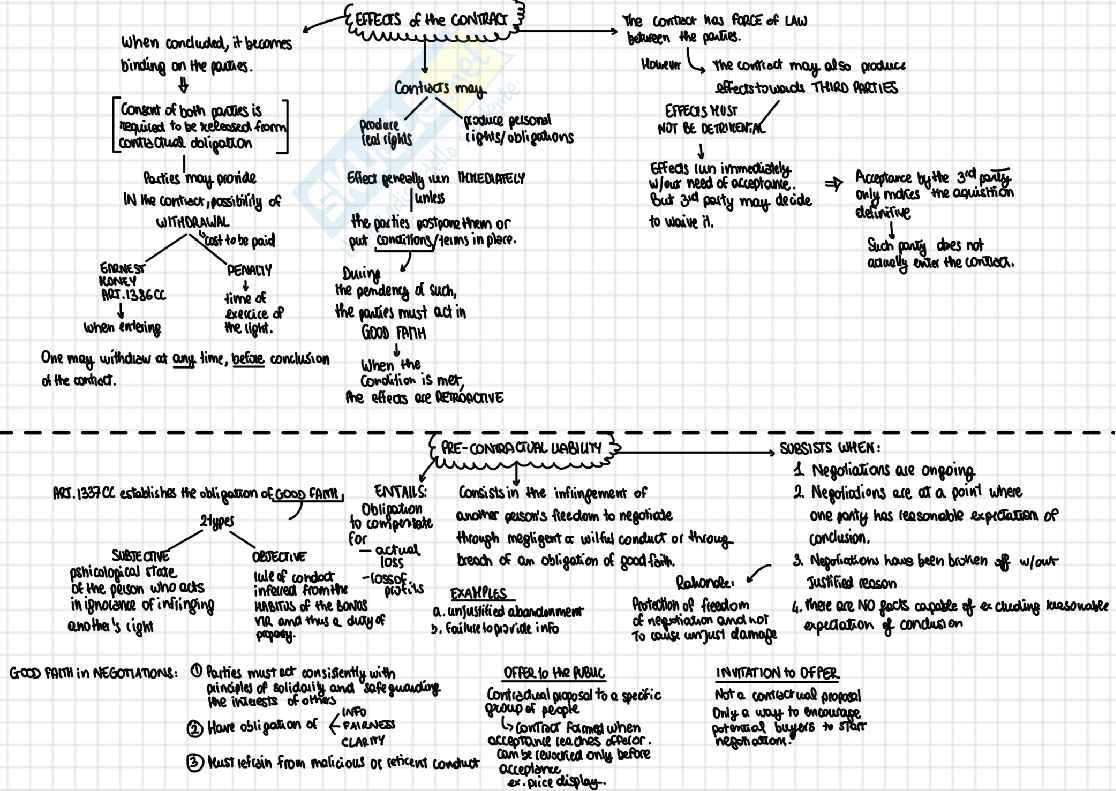 EFFECTS of the CONTRACT
When concluded, it becomes
binding on the parties.
Consent of both parties is
required to be released from
contractual obligation
Parties may provide
IN the contract, possibility of
WITHDRAWAL
cost to be paid
EARNEST
MONEY
ART. 1386 CC
when entering
PENALTY
time of
exercice of
the right.
One may withdraw at any time, before conclusion
of the contract.
Contracts may
produce
real rights
produce personal
rights/obligations
Effect generally run IMMEDIATELY
unless
the parties postpone them or
put conditions/terms in place.
During
the pendency of such,
the parties must act in
GOOD FAITH
When the
Condition is met,
the effects are RETROACTIVE
The contract has FORCE of LAW
between the parties.
However
The contract may also produce
effects towards THIRD PARTIES
EFFECTS MUST
NOT BE DETRIMENTAL
Effects run immediately
w/our need of acceptance.
But 3rd party may decide
to waive it.
Acceptance by the 3rd party
only makes the aquisition
definitive
Such party does not
actually enter the contract.
PRE-CONTRACTUAL LIABILITY
ART. 1337 CC establishes the obligation of GOOD FAITH
2 types
SUBJECTIVE
pshicological state
of the person who acts
in ignorance of infringing
another's right
OBJECTIVE
rule of conduct
inferred from the
HABITUS of the BONUS
VIR and thus a duty of
propery.
ENTAILS:
Obligation
to compensate
for
— actual
loss
- loss of
profits
Consists in the infringement of
another person's freedom to negotiate
through negligent or wilful conduct or throug
breach of an obligation of good faith.
EXAMPLES
a. unjustified abandonment
b. failure to provide info
Rationale:
Protection of freedom
of negotiation and not
To cause unjust damage
SUBSISTS WHEN:
1. Negotiations are ongoing
2. Negotiations are at a point where
one party has reasonable expectation of
conclusion.
3. Negotiations have been broken off w/out
Justified reason
4. there are NO facts capable of excluding reasonable
expectation of conclusion
GOOD FAITH in NEGOTIATIONS:
① Parties must act consistently with
principles of solidarity and safeguarding
the interests of others
② Have obligation of
INFO
FAIRNESS
CLARITY
③ Must refrain from malicious or reticent conduct
OFFER to the PUBLIC
Contractual proposal to a specific
group of people
contract formed when
acceptance reaches offeror.
can be revocked only before
acceptance
ex. price display.
INVITATION to OFFER
Not a contractual proposal
Only a way to encourage
potential buyers to start
negotiation.